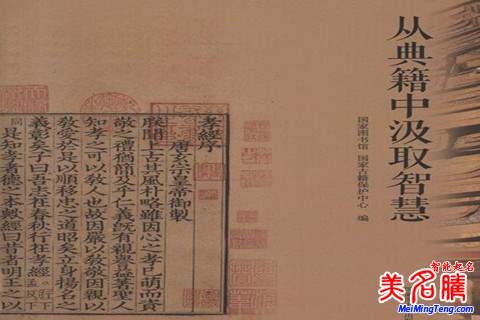 从典籍中汲取智慧
国家图书馆 国家古籍保护中心 编
孝經序
唐玄宗皇帝御製
朕聞上古其風朴略雖因心之孝已萌而資
敬之禮猶簡及乎仁義既有親譽益著聖人
知孝之可以教人也故因嚴以教敬因親以
教愛於是以順移忠之道昭矣立身揚名之
義彰矣子曰吾志在春秋行在孝經行下孟反下
同是知孝者德之本歟經曰昔者明王之以
智能起名
美名腾
MeiMingTeng.com